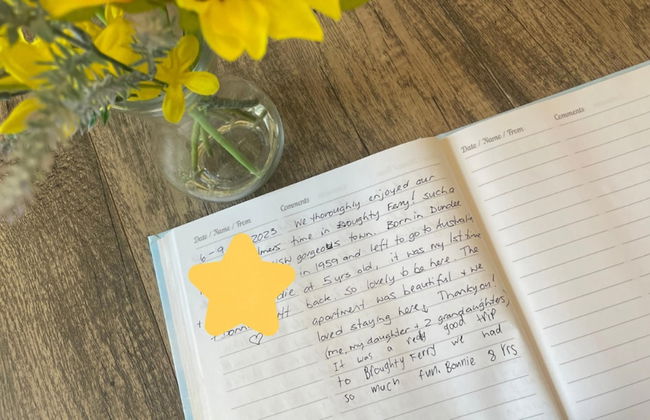 Date / Name / From Comments
6 - 9 2023 We thoroughly enjoyed our
lmers time in Broughty Ferry! such a
NSW gorgeous town. Born in Dundee
in 1959 and left to go to Australia
die at 5 yrs old, it was my 1st time
NT back. So lovely to be here. The
+ Bonni apartment was beautiful + we
loved staying here. Thankyou!
(me, my daughter + 2 grandaughters)
It was a good trip
to Broughty Ferry we had
so much fun. Bonnie 8 yrs
Date / Name / From Comments